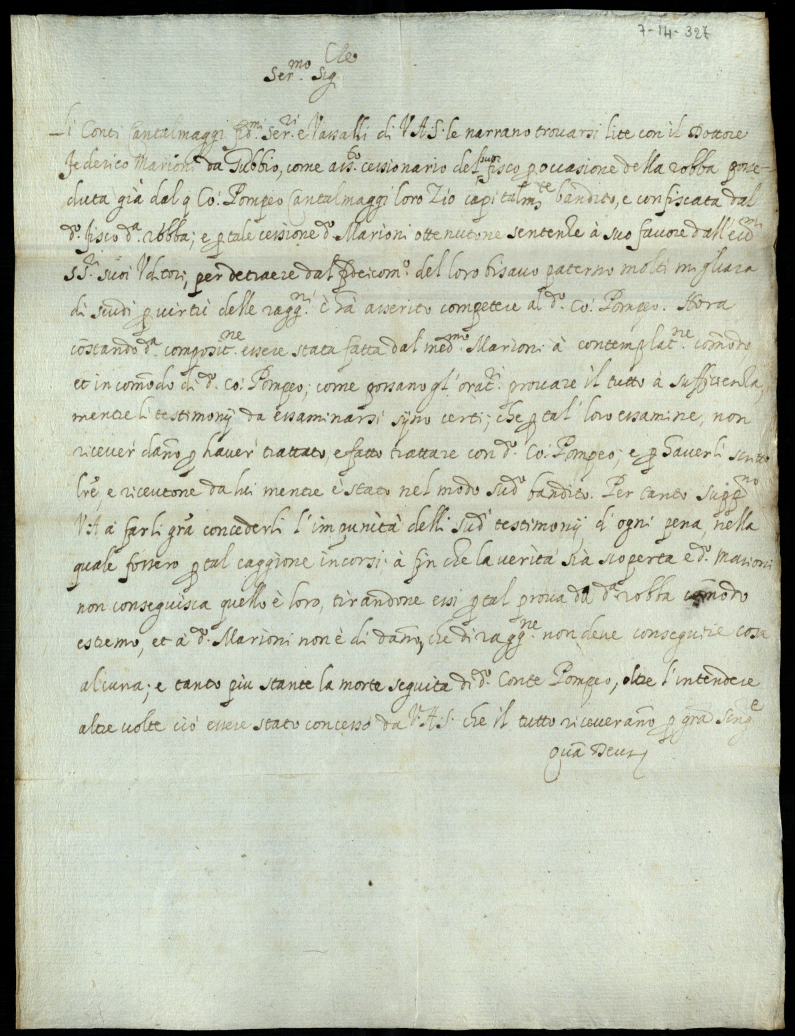 7-14-327
Ser.mo Sig.
Li Conti Cantalmaggi fid.mi Ser.ri e Vassalli di V.A.S. le narrano trovarsi lite con il Dottore
Federico Marioni da Gubbio, come ass.to cessionario del suo fisco p occasione della robba posse-
duta già dal q Co: Pompeo Cantalmaggi loro Zio capitalm.te bandito, e confiscata dal
d.o fisco d.a robba; e p tale cessione d.o Marioni ottenutone sentenze à suo favore dall'
SS.ri suoi Vditori, per detraere dal fideicom.o del loro bisavo paterno molti migliara
di scudi p virtù delle ragg.ni è stà asserito competere al d.o Co: Pompeo. Hora
costando d.a composit.ne essere stata fatta dal med.mo Marioni à contemplat.ne comodo
et incomodo di d.o Co: Pompeo; come possano gl'orat.i provare il tutto à sufficienza,
mentre li testimonij da essaminarsi sijno certi; che p tal' loro essamine, non
ricever' dano p haver' trattato, e fatto trattare con d.o Co: Pompeo; e p haverli scritto
lr̃e e ricevutone da lui mentre è stato nel modo sud.o bandito. Per tanto supp.no
V.A. à farli grã concederli l'impunità delli sud.i testimonij d'ogni pena, nella
quale fossero p tal caggione incorsi à fin che la verità sià scoperta e d.o Marioni
non conseguisca quello è loro, tirandone essi p tal prova da d.a robba comodo
estremo, et à d.o Marioni non è di dano, che di ragg.ne non deve conseguire cosa
alcuna; e tanto più stante la morte seguita di d.o Conte Pompeo, oltre l'intendere
altre volte ciò essere stato concesso da V.A.S. che il tutto riceverano p grã sing.e
Quã Deus